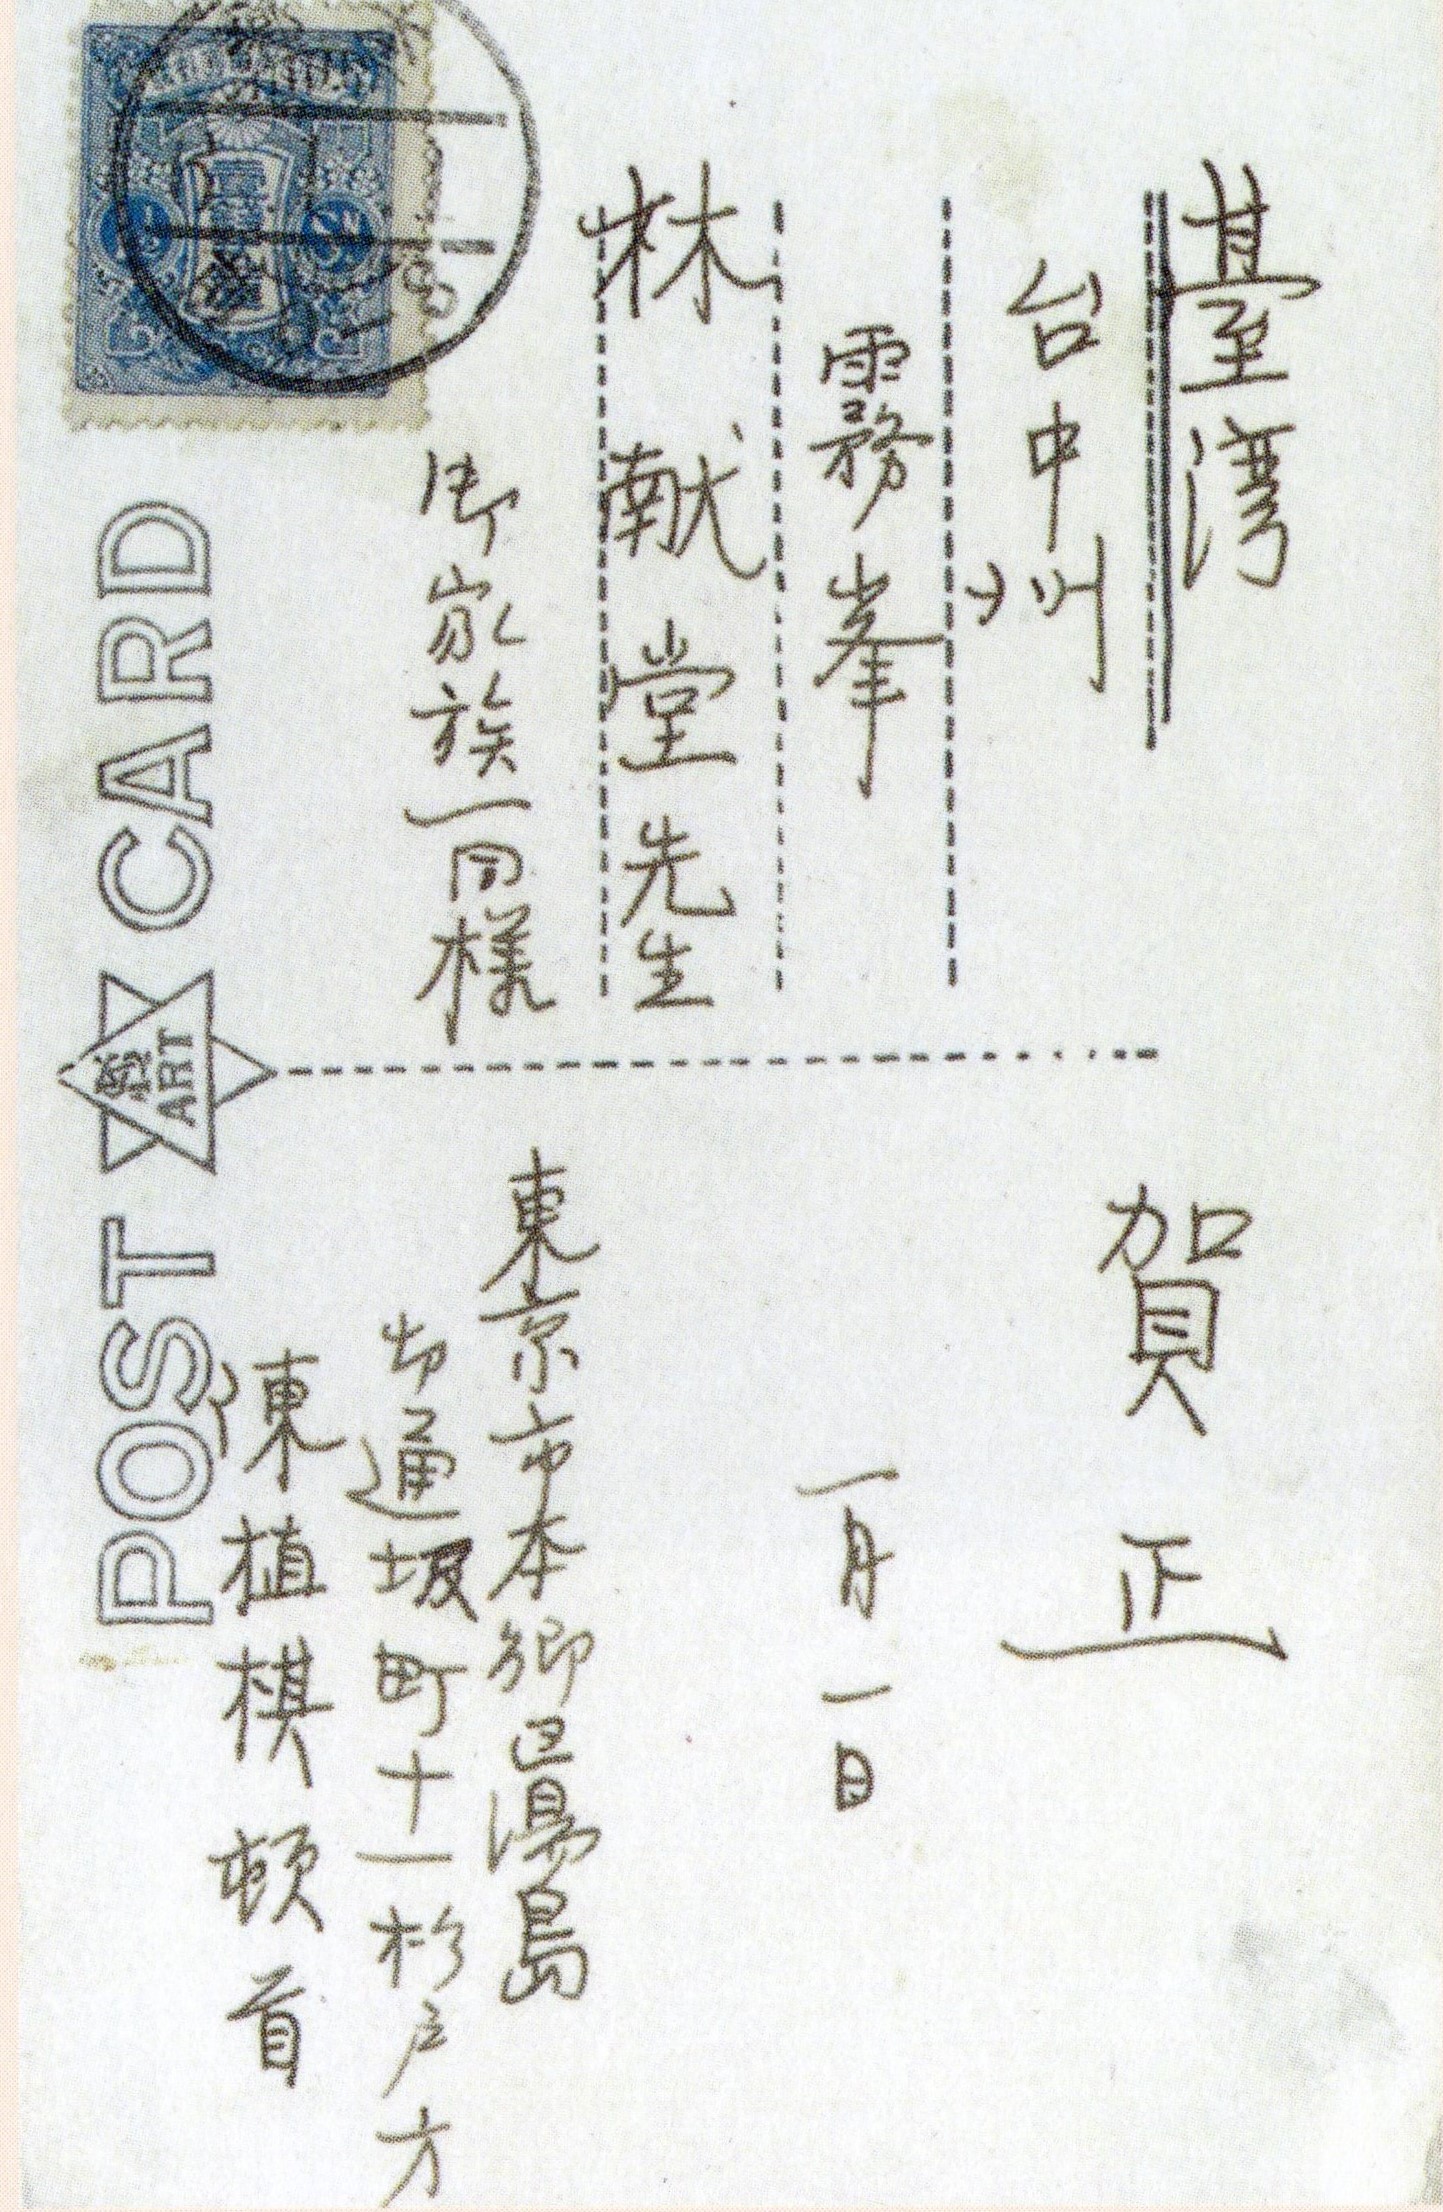 臺灣
台中州
霧峯
林献堂先生
御家族一同様
賀正
一月一日
東京市本郷區湯島
切通坂町十一杉戸方
陳植棋頓首
POST CARD
ART